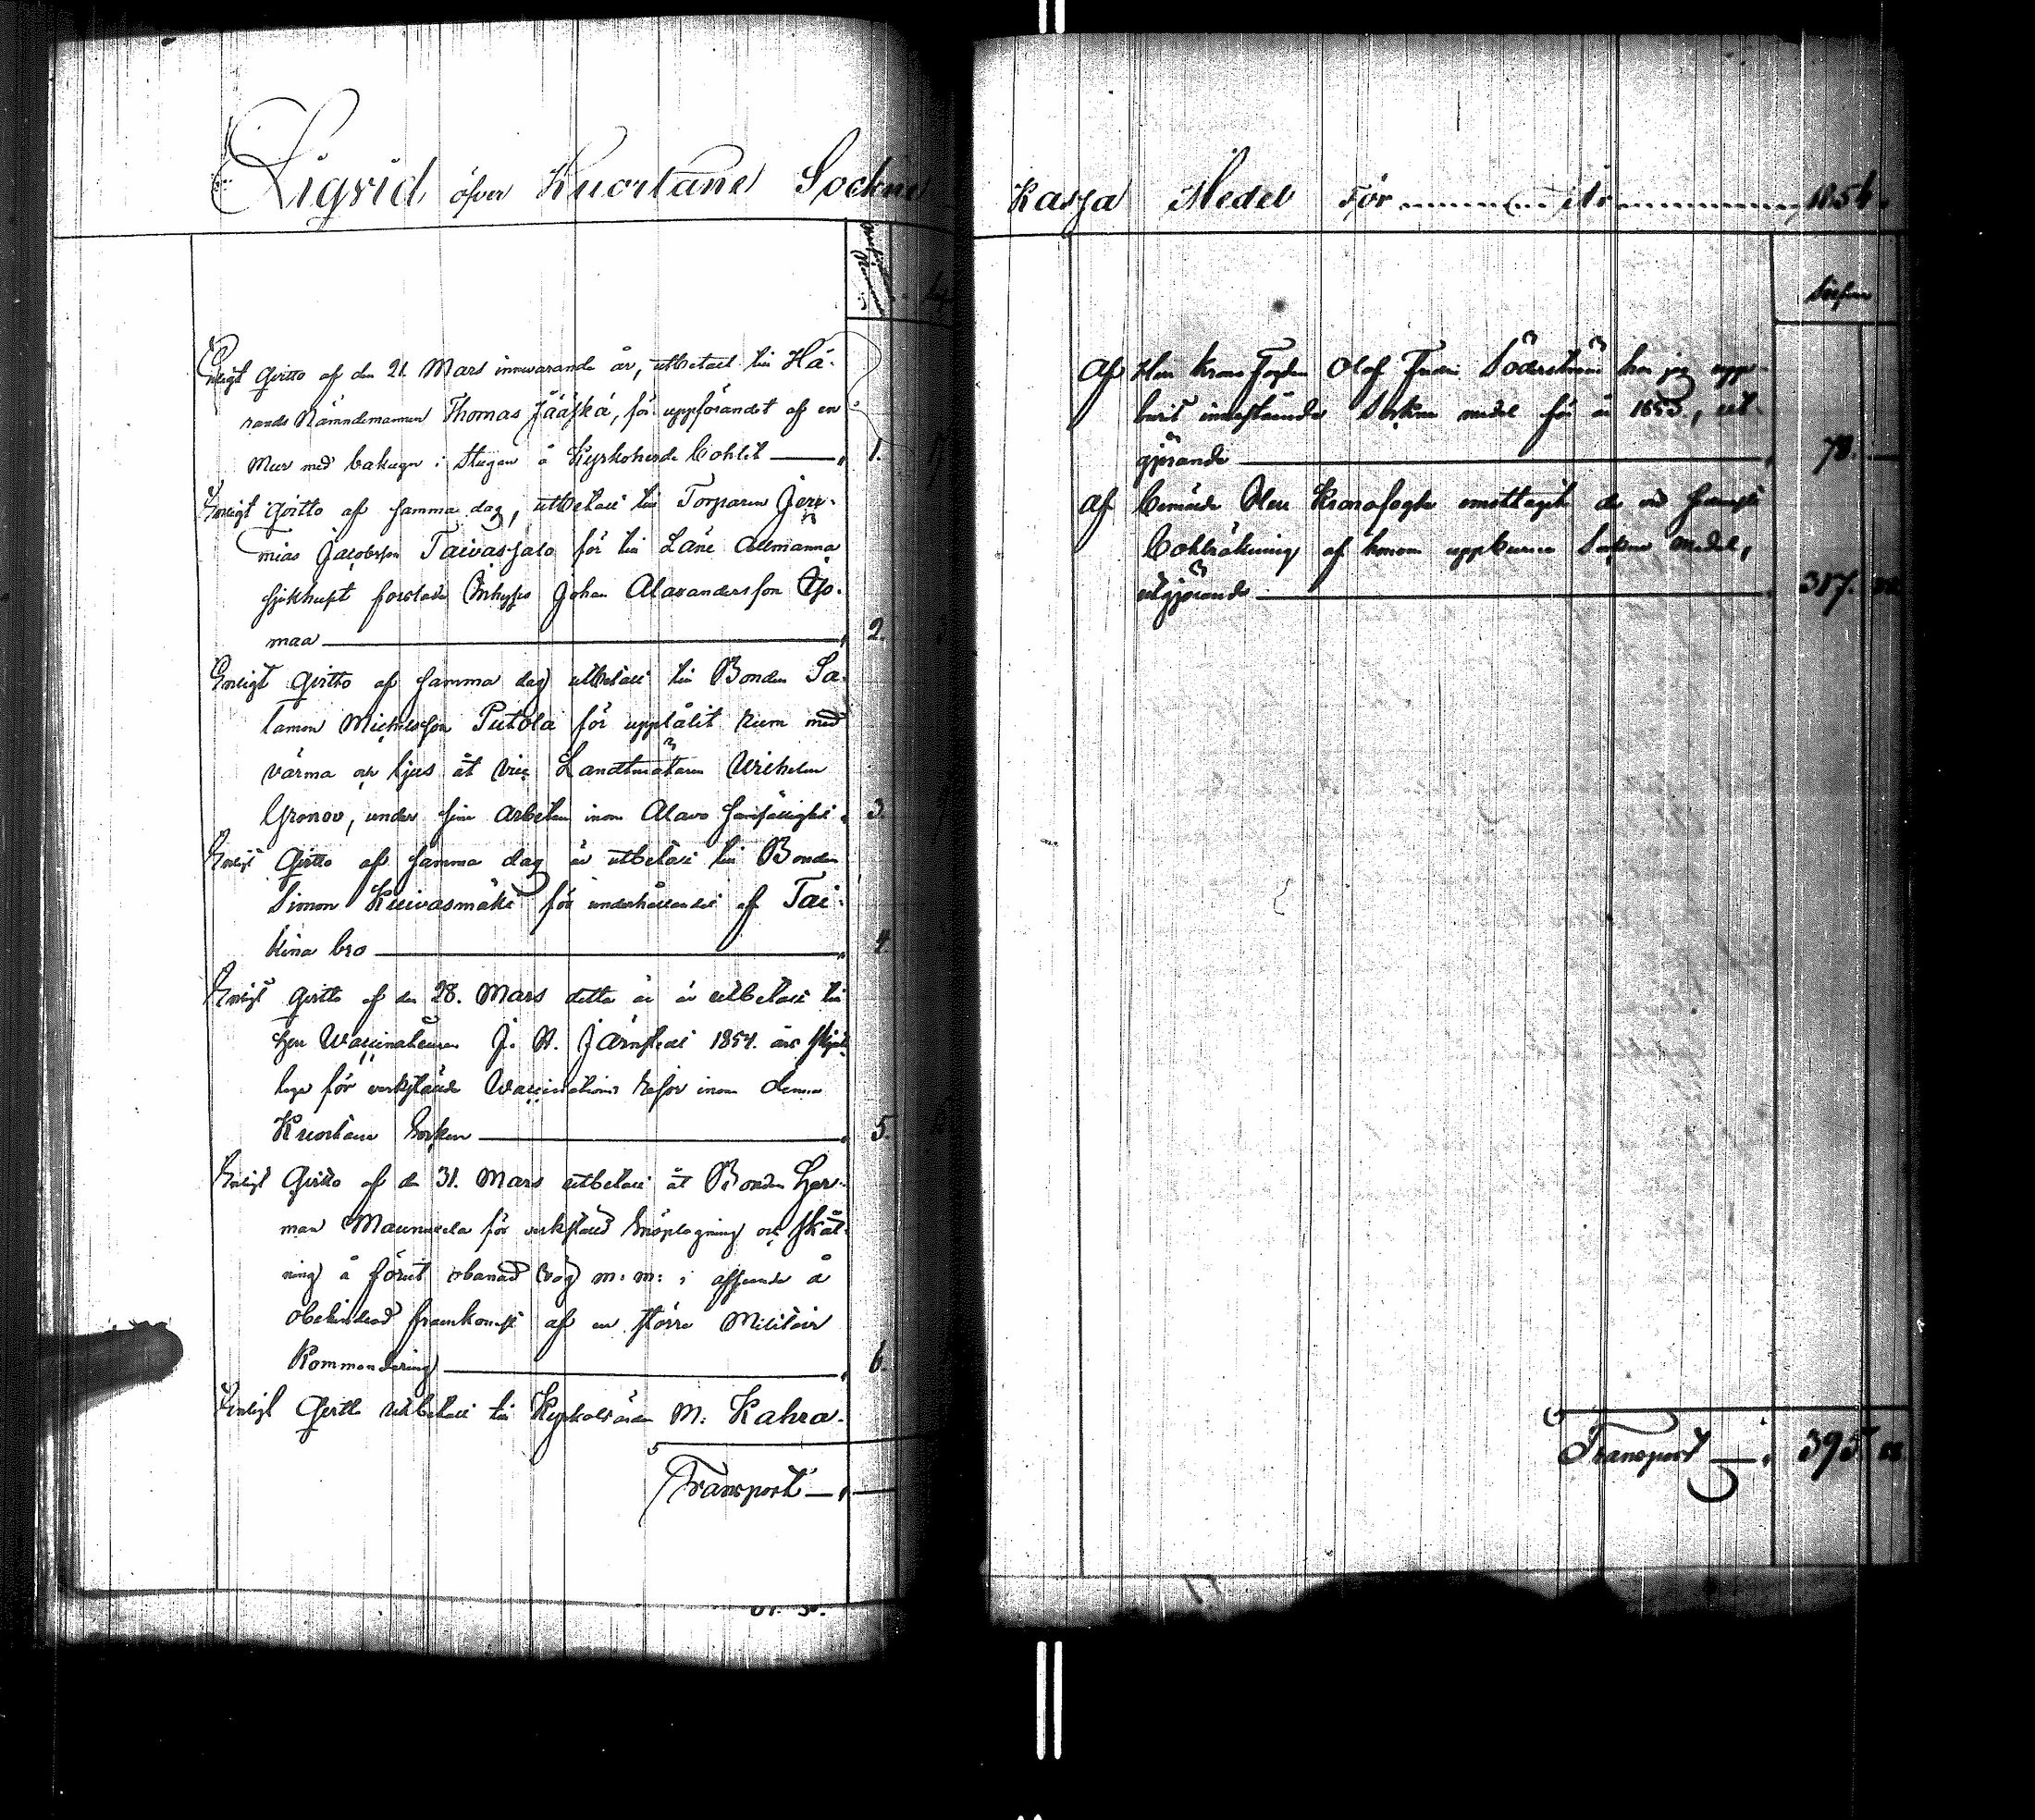 Liqvid öfver Kuortane Sockne
Enligt Qvitto af den 21. Mars innevarande år, utbetalt till Hä-
rads Nämndemannen Thomas Jääskä, för uppförandet af en
Mur med bakugn i stugan å Kyrkoherde Bohlet 1.
Enligt Qvitto af samma dag, utbetalt till Torparen Jere-
mias Jacobsson Taivassalo för till Läne Allmänna
sjukhuset Inhyses Johan Alexandersson
maa 2.
Enligt Qvitto af samma dag utbetalt till Bonden Sa-
lamon Michelsson Putola för upplåtit rum med
värma och ljus åt Vice Landtmätaren Wilhelm
Gronov, under sina arbeten inom Alavo 3.
Enligt Qvitto af samma dag är utbetalt till Bonden
Simon Kuivasmäki för underhållandet af Tai-
bro 4.
Enligt Qvitto af den 28. Mars detta år är utbetalt till
Herr Waccinateuren J. A. Järnstedt 1854. års
för verkställde Vaccinations resor inom denna
Kuortane Socken 5.
Enligt Qvitto af den 31. Mars utbetalt åt Bonden Her-
man Maunuela för verkställd snöplogning och skåt-
ning å förut obanad väg m: m: i afseende å
obehindrad framkomst af en större Militair
Kommendering 6.
Enligt Qvitto utbetalt till Kyrkovärden M: Kahra-
Transport
Kassa Medel För År 1854.
Af Herr Krono Fogden Olof Söderström har jag upp-
burit innestående Sockne medel för år 1853, ut-
görande 78.
Af Bemälde Herr Kronofogde emottagit de vid
af honom uppburne Sockne medel,
utgörande 317.
Transport 395